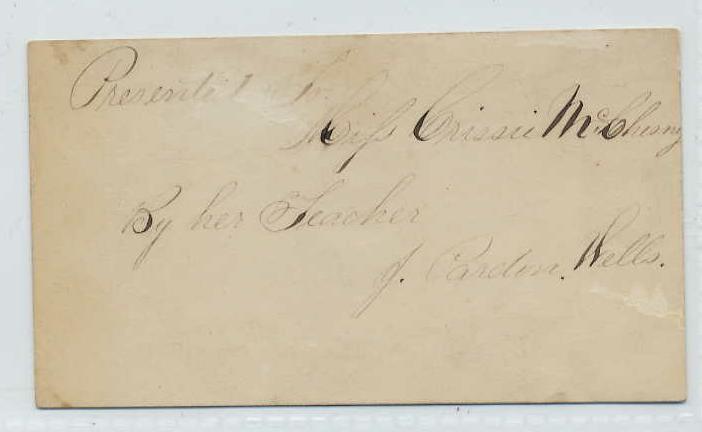 Presented To
Miss Crissie McChesny
By her Teacher
J. Cardon. Wells.